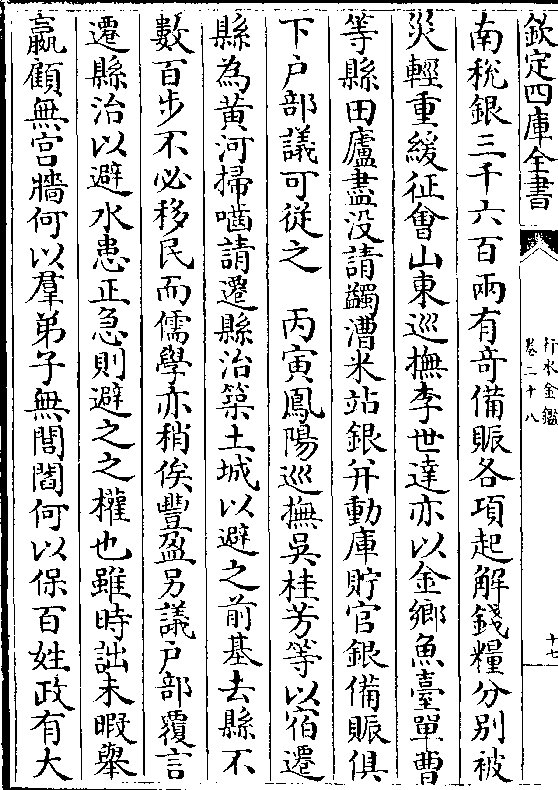 欽定四庫全書
行水金鑑
卷二十八
十七
南稅銀三千六百兩有奇備賑各項起解錢糧分別被
災輕重緩征會山東巡撫李世達亦以金鄉魚臺單曹
等縣田廬盡没請蠲漕米站銀并動庫貯官銀備賑俱
下户部議可從之　丙寅鳳陽巡撫吳桂芳等以宿遷
縣為黄河掃嚙請遷縣治築土城以避之前基去縣不
數百步不必移民而儒學亦稍俟豐盈另議户部覆言
遷縣治以避水患正急則避之之權也雖時詘未暇舉
羸顧無宫牆何以羣弟子無閭閻何以保百姓政有大